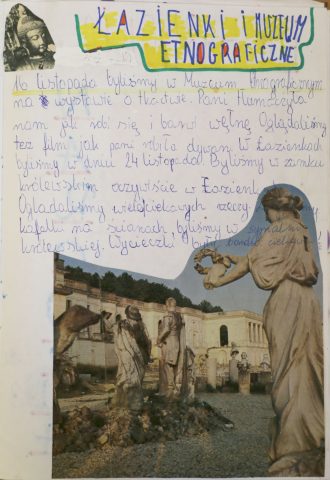 ŁAZIENKI I MUZEUM
ETNOGRAFICZNE
16 listopada byliśmy w Muzeum Etnograficznym
na wystawie o tkactwie. Pani tłumaczyła
nam jak robi się i barwi wełnę. Oglądaliśmy
też film jak pani robiła dywan. W Łazienkach
byliśmy w dniu 24 listopada. Byliśmy w zamku
królewskim oczywiście w
Oglądaliśmy wiele ciekawych rzeczy
kafelki na ścianach, byliśmy w sypialni
królewskiej. Wycieczki były bardzo